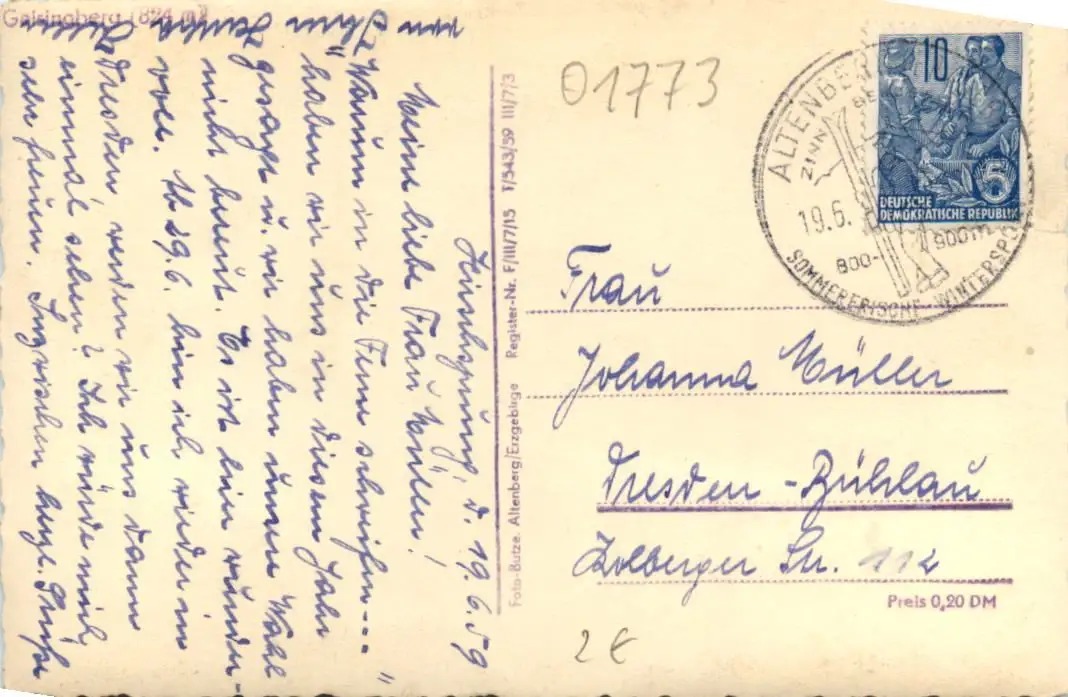 Geisingberg (824 m)
Hirschsprung, d. 19.6.59
Meine liebe Frau Müller!
"Warum in die Ferne schweifen---"
haben wir uns in diesem Jahr
gesagt u. wir haben unsere Wahl
nicht bereut. Es ist hier wunder-
voll. Ab 29.6. bin ich wieder in
Dresden, werden wir uns dann
einmal sehen? Ich würde mich
sehr freuen. Inzwischen herzl. Grüße
von Ihrer
Foto-Butze, Altenberg/Erzgebirge Register-Nr. F/III/7/15 T/543/59 III/7/3
01773
ALTENBERG
ZINN
19.6.
800-900m
SOMMERFRISCHE WINTERSPO
10
5
DEUTSCHE
DEMOKRATISCHE REPUBLIK
Frau
Johanna Müller
Dresden-Bühlau
Kolberger Str. 112
Preis 0,20 DM
2 €